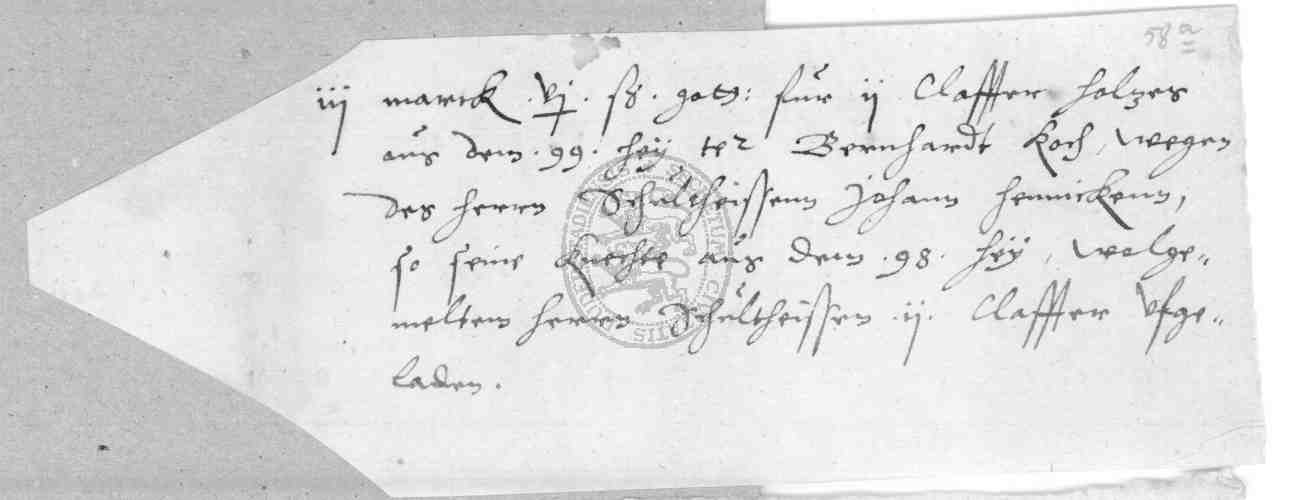 58 a
iij marck . vj . ß . gott: für ij Claffter holzes
aus dem . 99 . hey ter Bernhardt Koch, wegen
des herrn Schultheissenn Johann Hennickenn,
so seine Knechte aus dem . 98 . hey, wolge-
meltem herrn Schultheissen . ij . Claffter vfge-
laden .